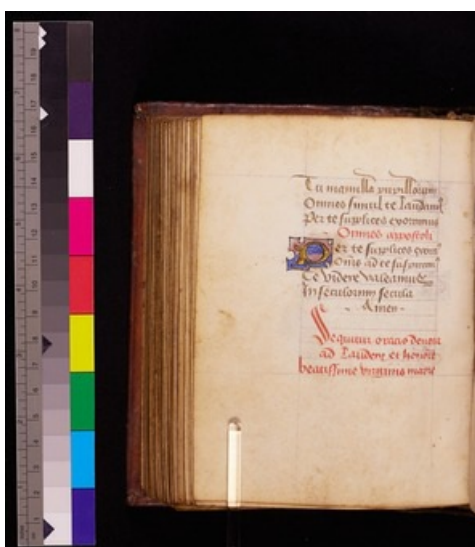 Tu mamilla pupillorum
Omnes simul te laudam⁹
Per te supplices exoramus
Omnes apostoli
Per te supplices exora⁹
Omīs ad te suspiram⁹
Te videre valeamus
In seculorum secula
Amen
Sequitur oracio devota
ad laudem et honorē
beatissime virginis marie